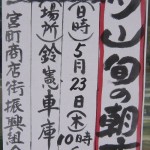 山旬の朝市
(日時)5月23日(木)10時
(場所)鈴憲車庫
宮町商店街振興組合